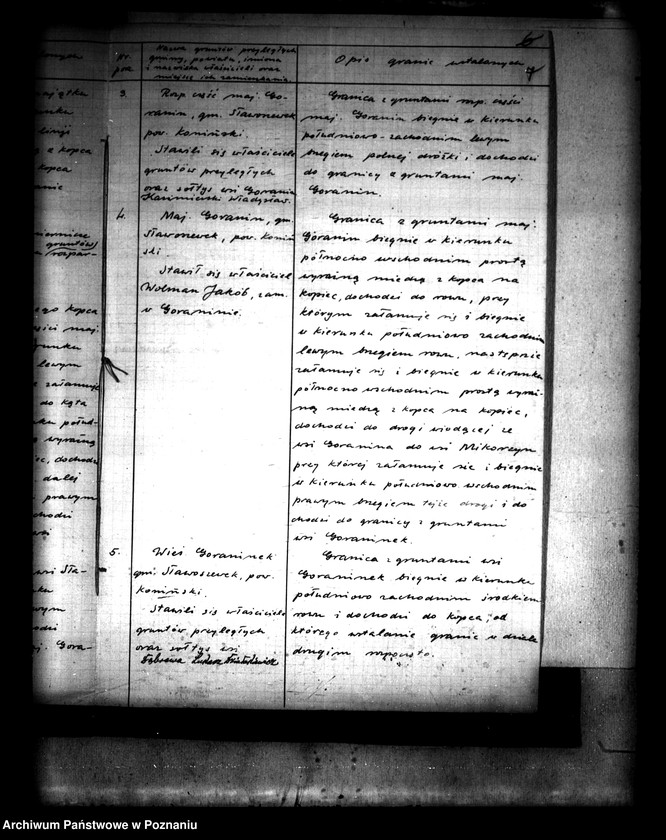 6
Nr. poz.
Nazwa gruntów przyległych
gminy, powiatu, imiona
i nazwiska właścicieli oraz
miejsce ich zamieszkania
Opis granic ustalonych
3.
Rozp. część maj. Go-
ranin, gm. Sławoszewek
pow. Koniński.
Stawili się właściciele
gruntów przyległych
oraz sołtys wsi Goranin
Władysław.
Granica z gruntami rozp. części
maj. Goranin biegnie w kierunku
południowo-zachodnim lewym
brzegiem polnej dróżki i dochodzi
do granicy z gruntami maj.
Goranin.
4.
Maj. Goranin, gm.
Sławoszewek, pow. Koniń
ski.
Stawił się właściciel
Wolman Jakób, zam.
w Goraninie.
Granica z gruntami maj.
Goranin biegnie w kierunku
północno wschodnim prostą
wyraźną miedzą z kopca na
kopiec, dochodzi do rowu, przy
którym załamuje się i biegnie
w kierunku południowo zachodnim
lewym brzegiem rowu, następnie
załamuje się i biegnie w kierunku
północno wschodnim prostą wyraź-
ną miedzą z kopca na kopiec,
dochodzi do drogi wiodącej ze
wsi Goranina do wsi Mikorzyn
przy której załamuje się i biegnie
w kierunku południowo wschodnim
prawym brzegiem tejże drogi i do
chodzi do granicy z gruntami
wsi Goraninek.
5.
Wieś Goraninek
gm. Sławoszewek, pow.
Koniński.
Stawili się właściciele
gruntów przyległych
oraz sołtys wsi
Granica z gruntami wsi
Goraninek biegnie w kierunku
południowo zachodnim środkiem
rowu i dochodzi do kopca, od
którego ustalanie granic w dziale
drugim rozpoczęto.
Archiwum Państwowe w Poznaniu